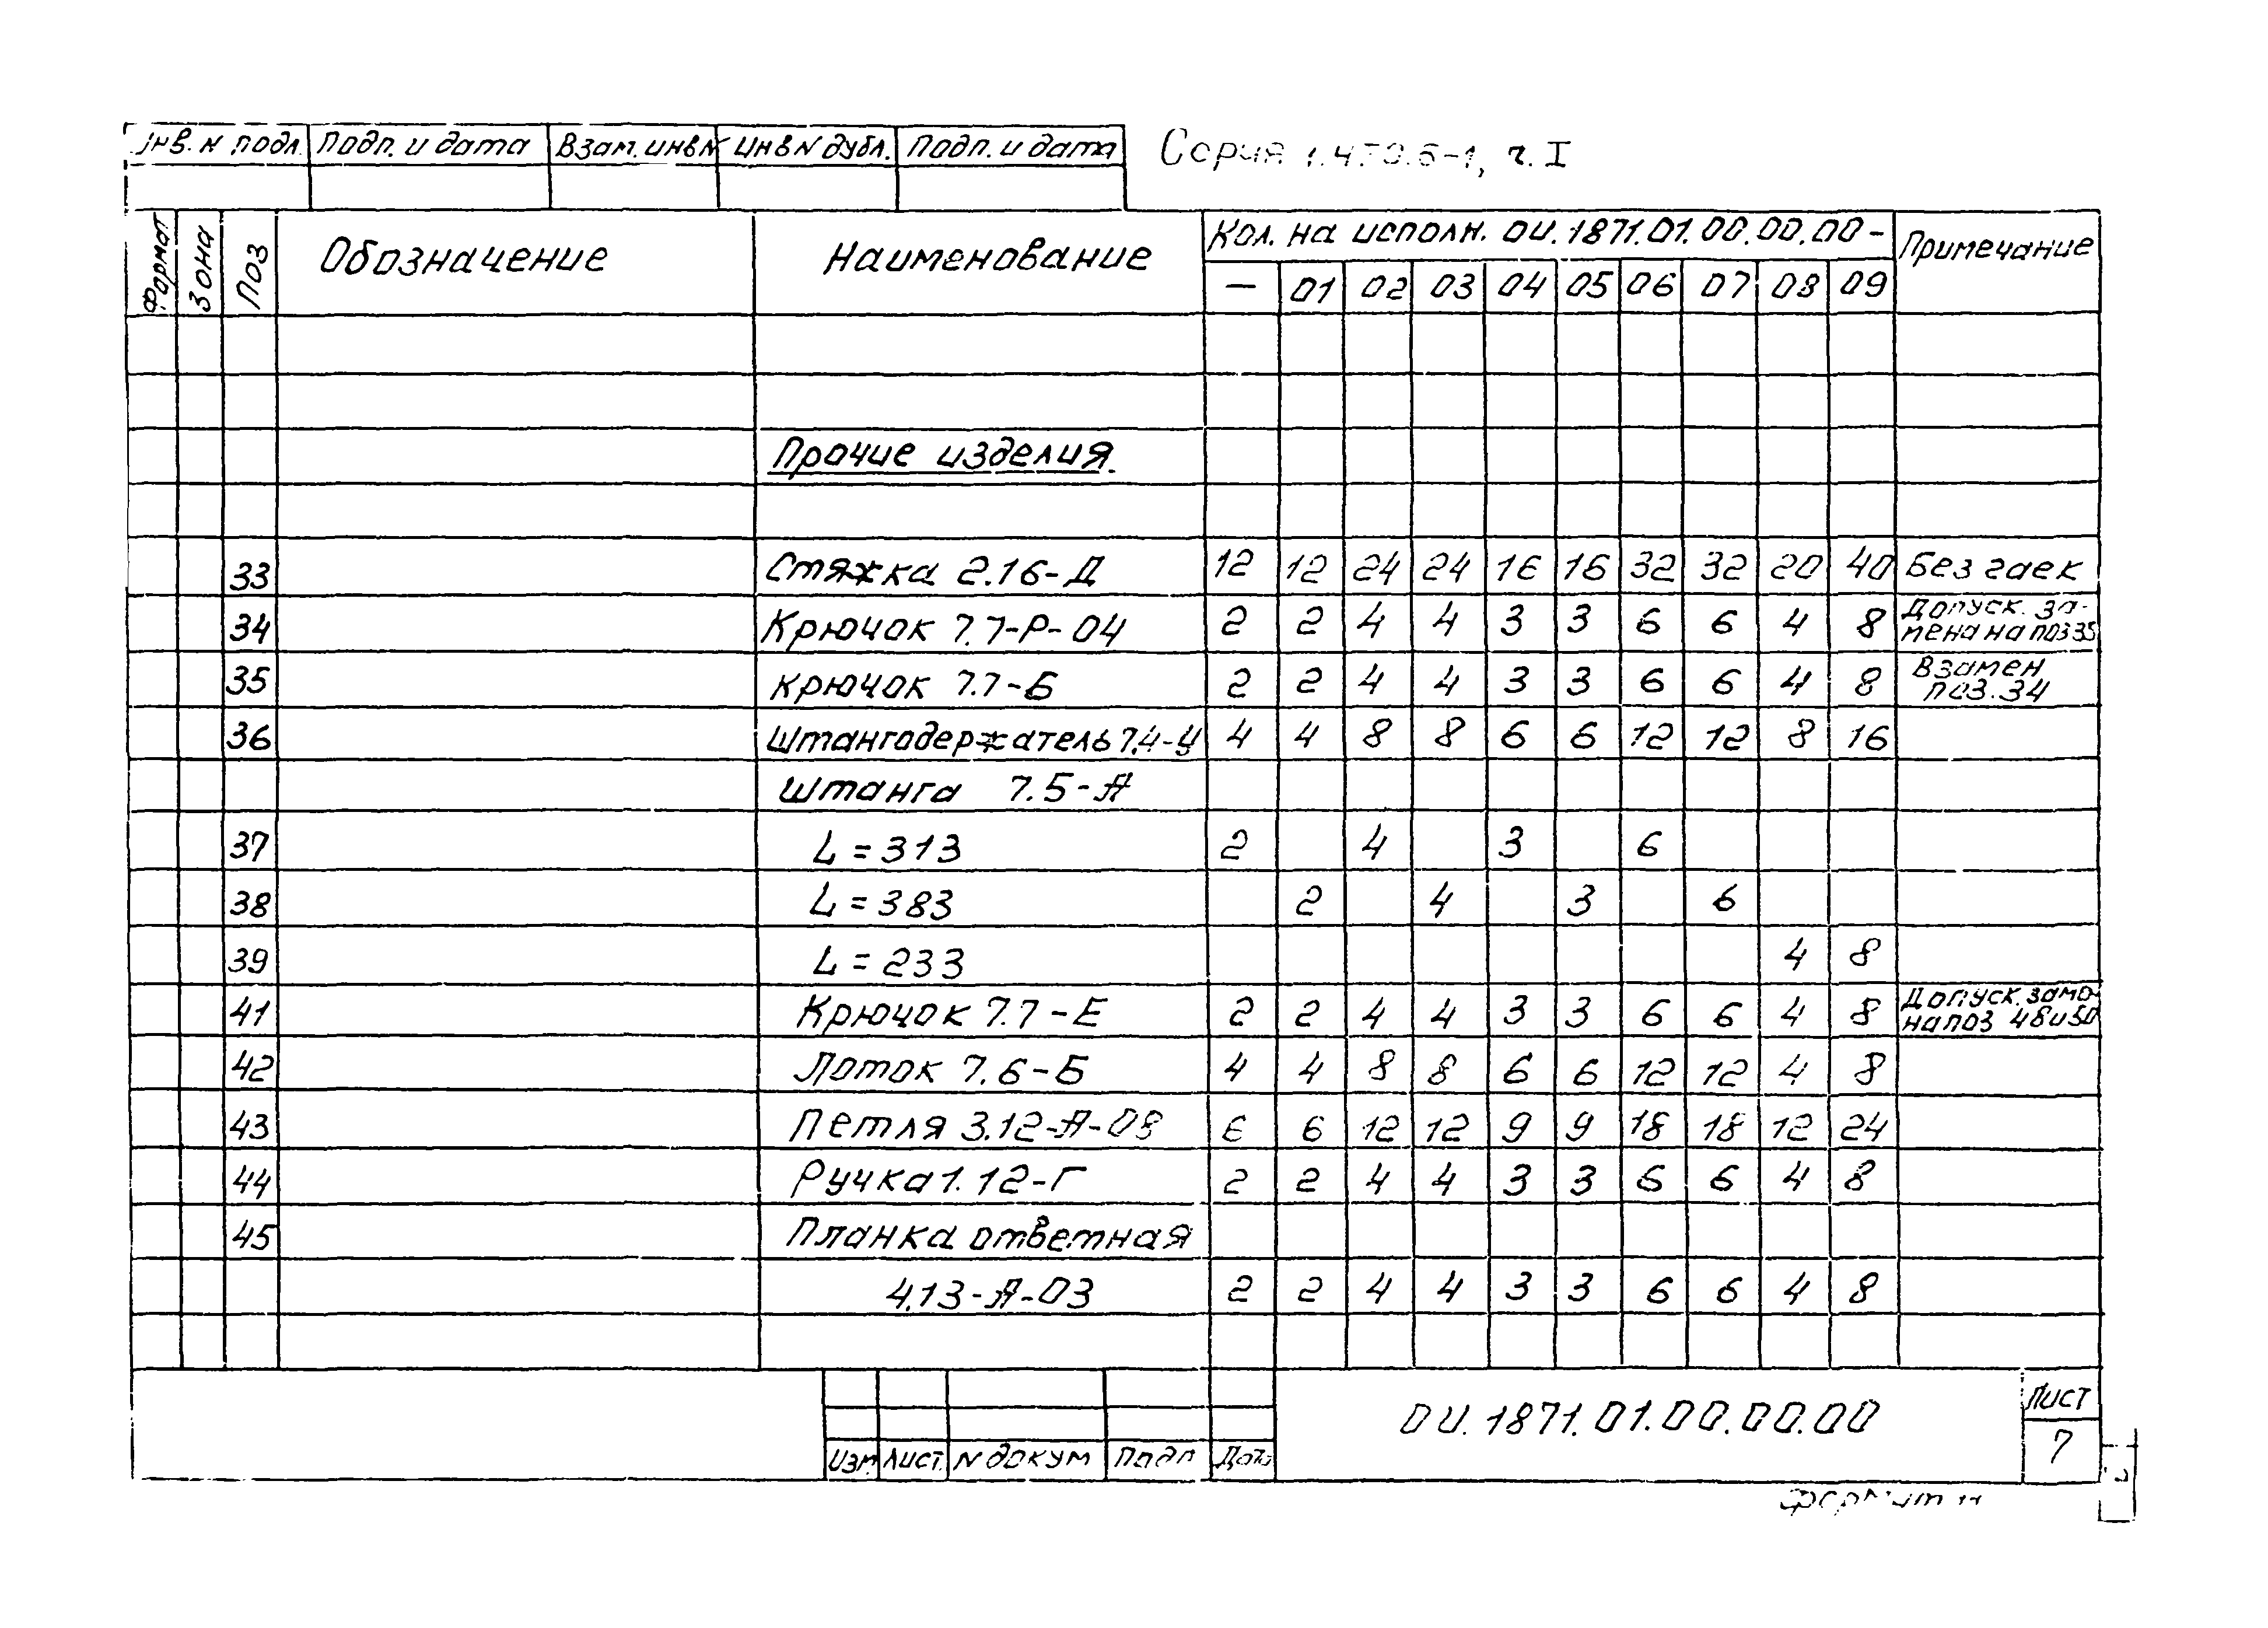 Инв. N подл. Подп. и дата Взам. инв N Инв N дубл. Подп. и дата Серия 1.470.6-1, ч. I
Формат Зона Поз Обозначение Наименование Кол. на исполн. ОИ.1871.01.00.00.00- Примечание
— 01 02 03 04 05 06 07 08 09
Прочие изделия
33 Стяжка 2.16-Д 12 12 24 24 16 16 32 32 20 40 Без гаек
34 Крючок 7.7-Р-04 2 2 4 4 3 3 6 6 4 8 Допуск. за-
мена на поз 35
35 крючок 7.7-Б 2 2 4 4 3 3 6 6 4 8 Взамен
поз. 34
36 Штангодержатель 7.4-У 4 4 8 8 6 6 12 12 8 16
штанга 7.5-А
37 L = 313 2 4 3 6
38 L = 383 2 4 3 6
39 L = 233 4 8
41 Крючок 7.7-Е 2 2 4 4 3 3 6 6 4 8 Допуск. заме-
на поз 48 и 50
42 Лоток 7.6-Б 4 4 8 8 6 6 12 12 4 8
43 Петля 3.12-А-08 6 6 12 12 9 9 18 18 12 24
44 Ручка 1.12-Г 2 2 4 4 3 3 6 6 4 8
45 Планка ответная
4.13-А-03 2 2 4 4 3 3 6 6 4 8
Изм Лист. N докум Подп Дата ОИ.1871.01.00.00.00 Лист
7
Формат 11